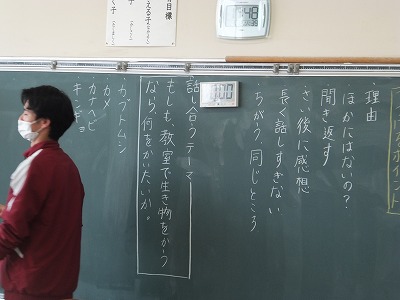 理由
・ほかにはないの?
聞き返す
・さい後に感想
長く話しすぎない
・ちがう、同じところ
話し合うテーマ
もしも、教室で生き物をかう
なら、何をかいたいか。
・カブトムシ
・カメ
・カナヘビ
・キンギョ